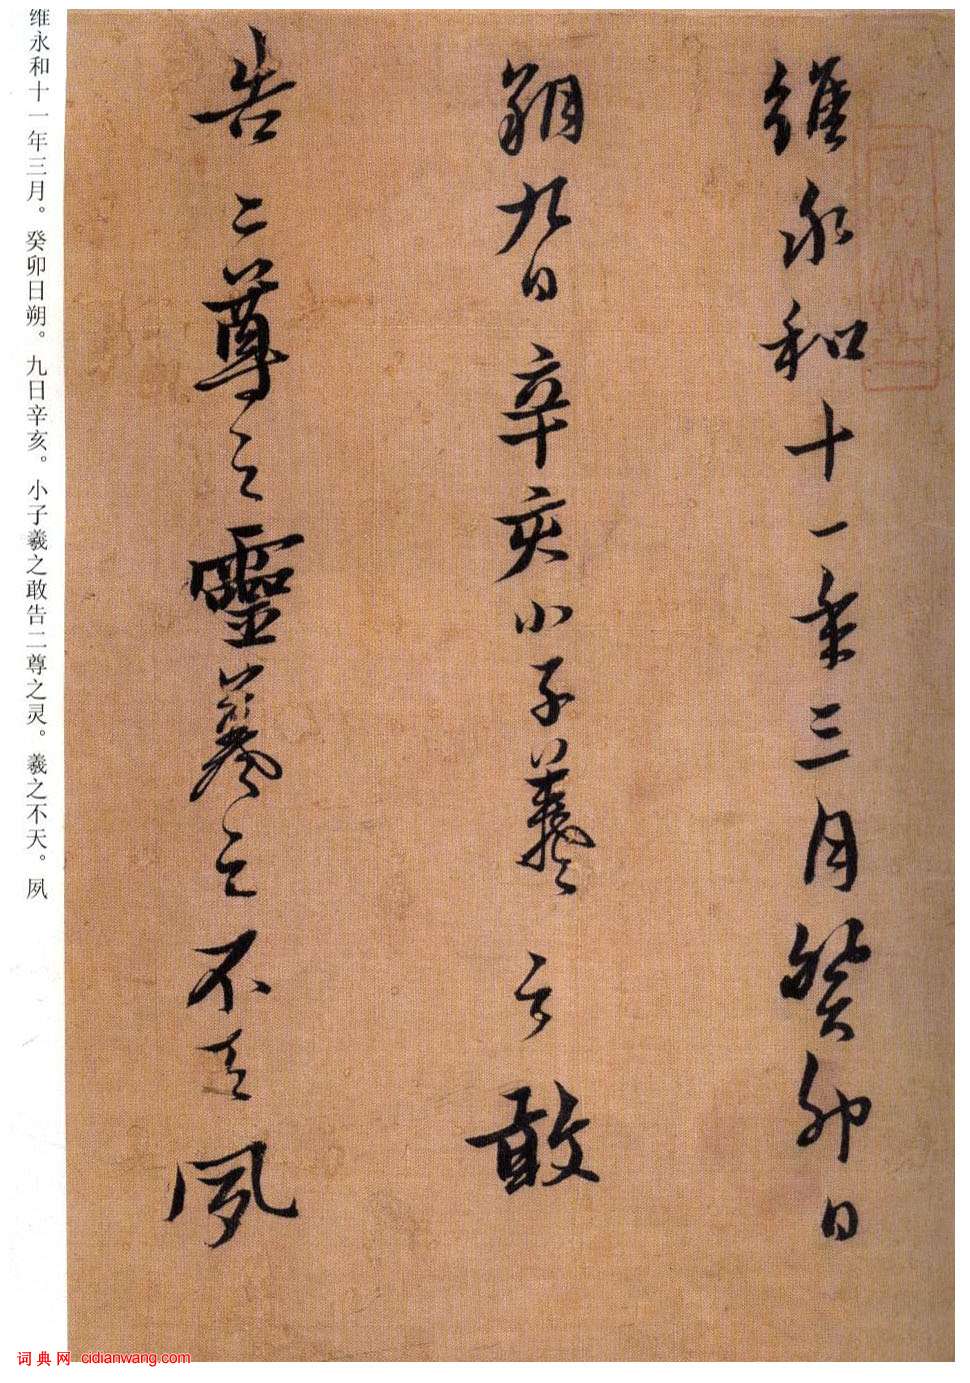 維永和十一年三月癸卯日
朔九日辛亥小子羲之敢
告二尊之靈羲之不天夙
维永和十一年三月。癸卯日朔。九日辛亥。小子羲之敢告二尊之灵。羲之不天。夙
词典网 cidianwang.com